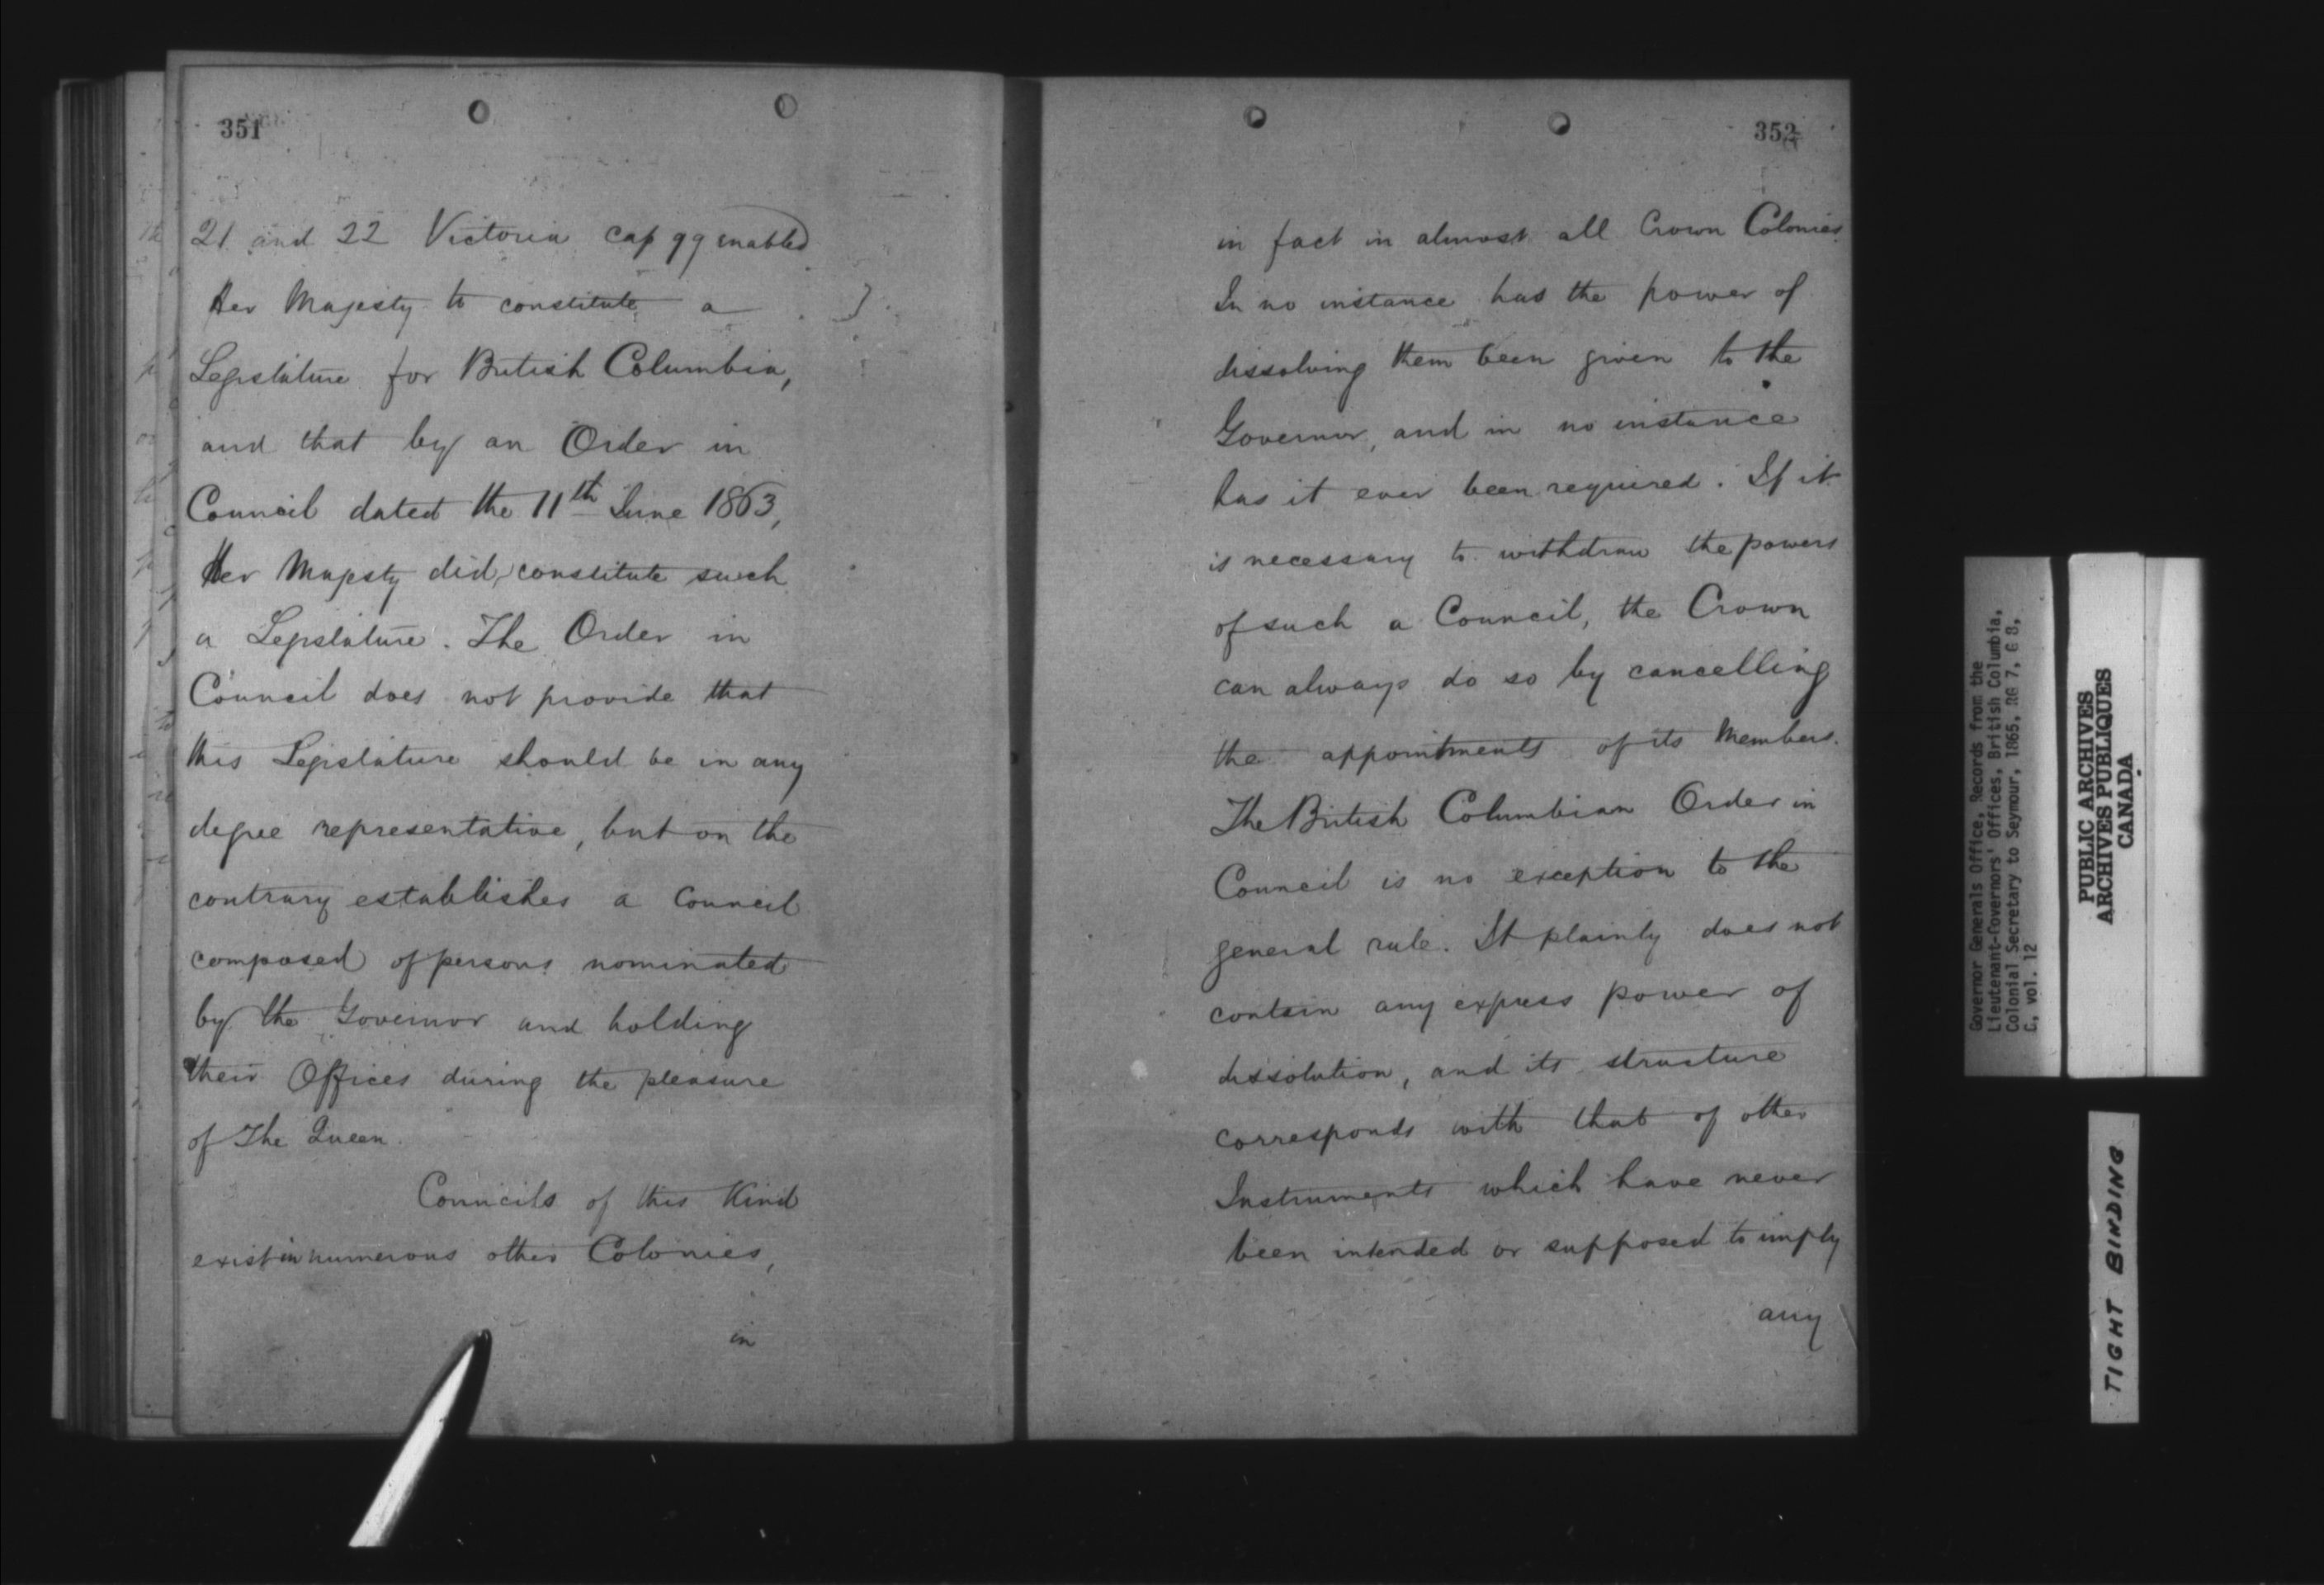 351
21 and 22 Victoria cap 99 enabled
Her Majesty to constitute a
Legislature for British Columbia,
and that by an Order in
Council dated the 11th June 1863,
Her Majesty did constitute such
a Legislature. The Order in
Council does not provide that
this Legislature should be in any
degree representative, but on the
contrary establishes a Council
composed of persons nominated
by the Governor and holding
their Offices during the pleasure
of The Queen.
Councils of this Kind
exist in numerous other Colonies,
in
352
in fact in almost all Crown Colonies.
In no instance has the power of
dissolving them been given to the
Governor, and in no instance
has it ever been required. If it
is necessary to withdraw the powers
of such a Council, the Crown
can always do so by cancelling
the appointments of its Members.
The British Columbian Order in
Council is no exception to the
general rule. It plainly does not
contain any express power of
dissolution, and its structure
corresponds with that of other
Instruments which have never
been intended or supposed to imply
any
Governor Generals Office, Records from the
Lieutenant-Governors' Offices, British Columbia,
Colonial Secretary to Seymour, 1865, RG 7, G 8,
C, vol. 12
PUBLIC ARCHIVES
ARCHIVES PUBLIQUES
CANADA
TIGHT BINDING